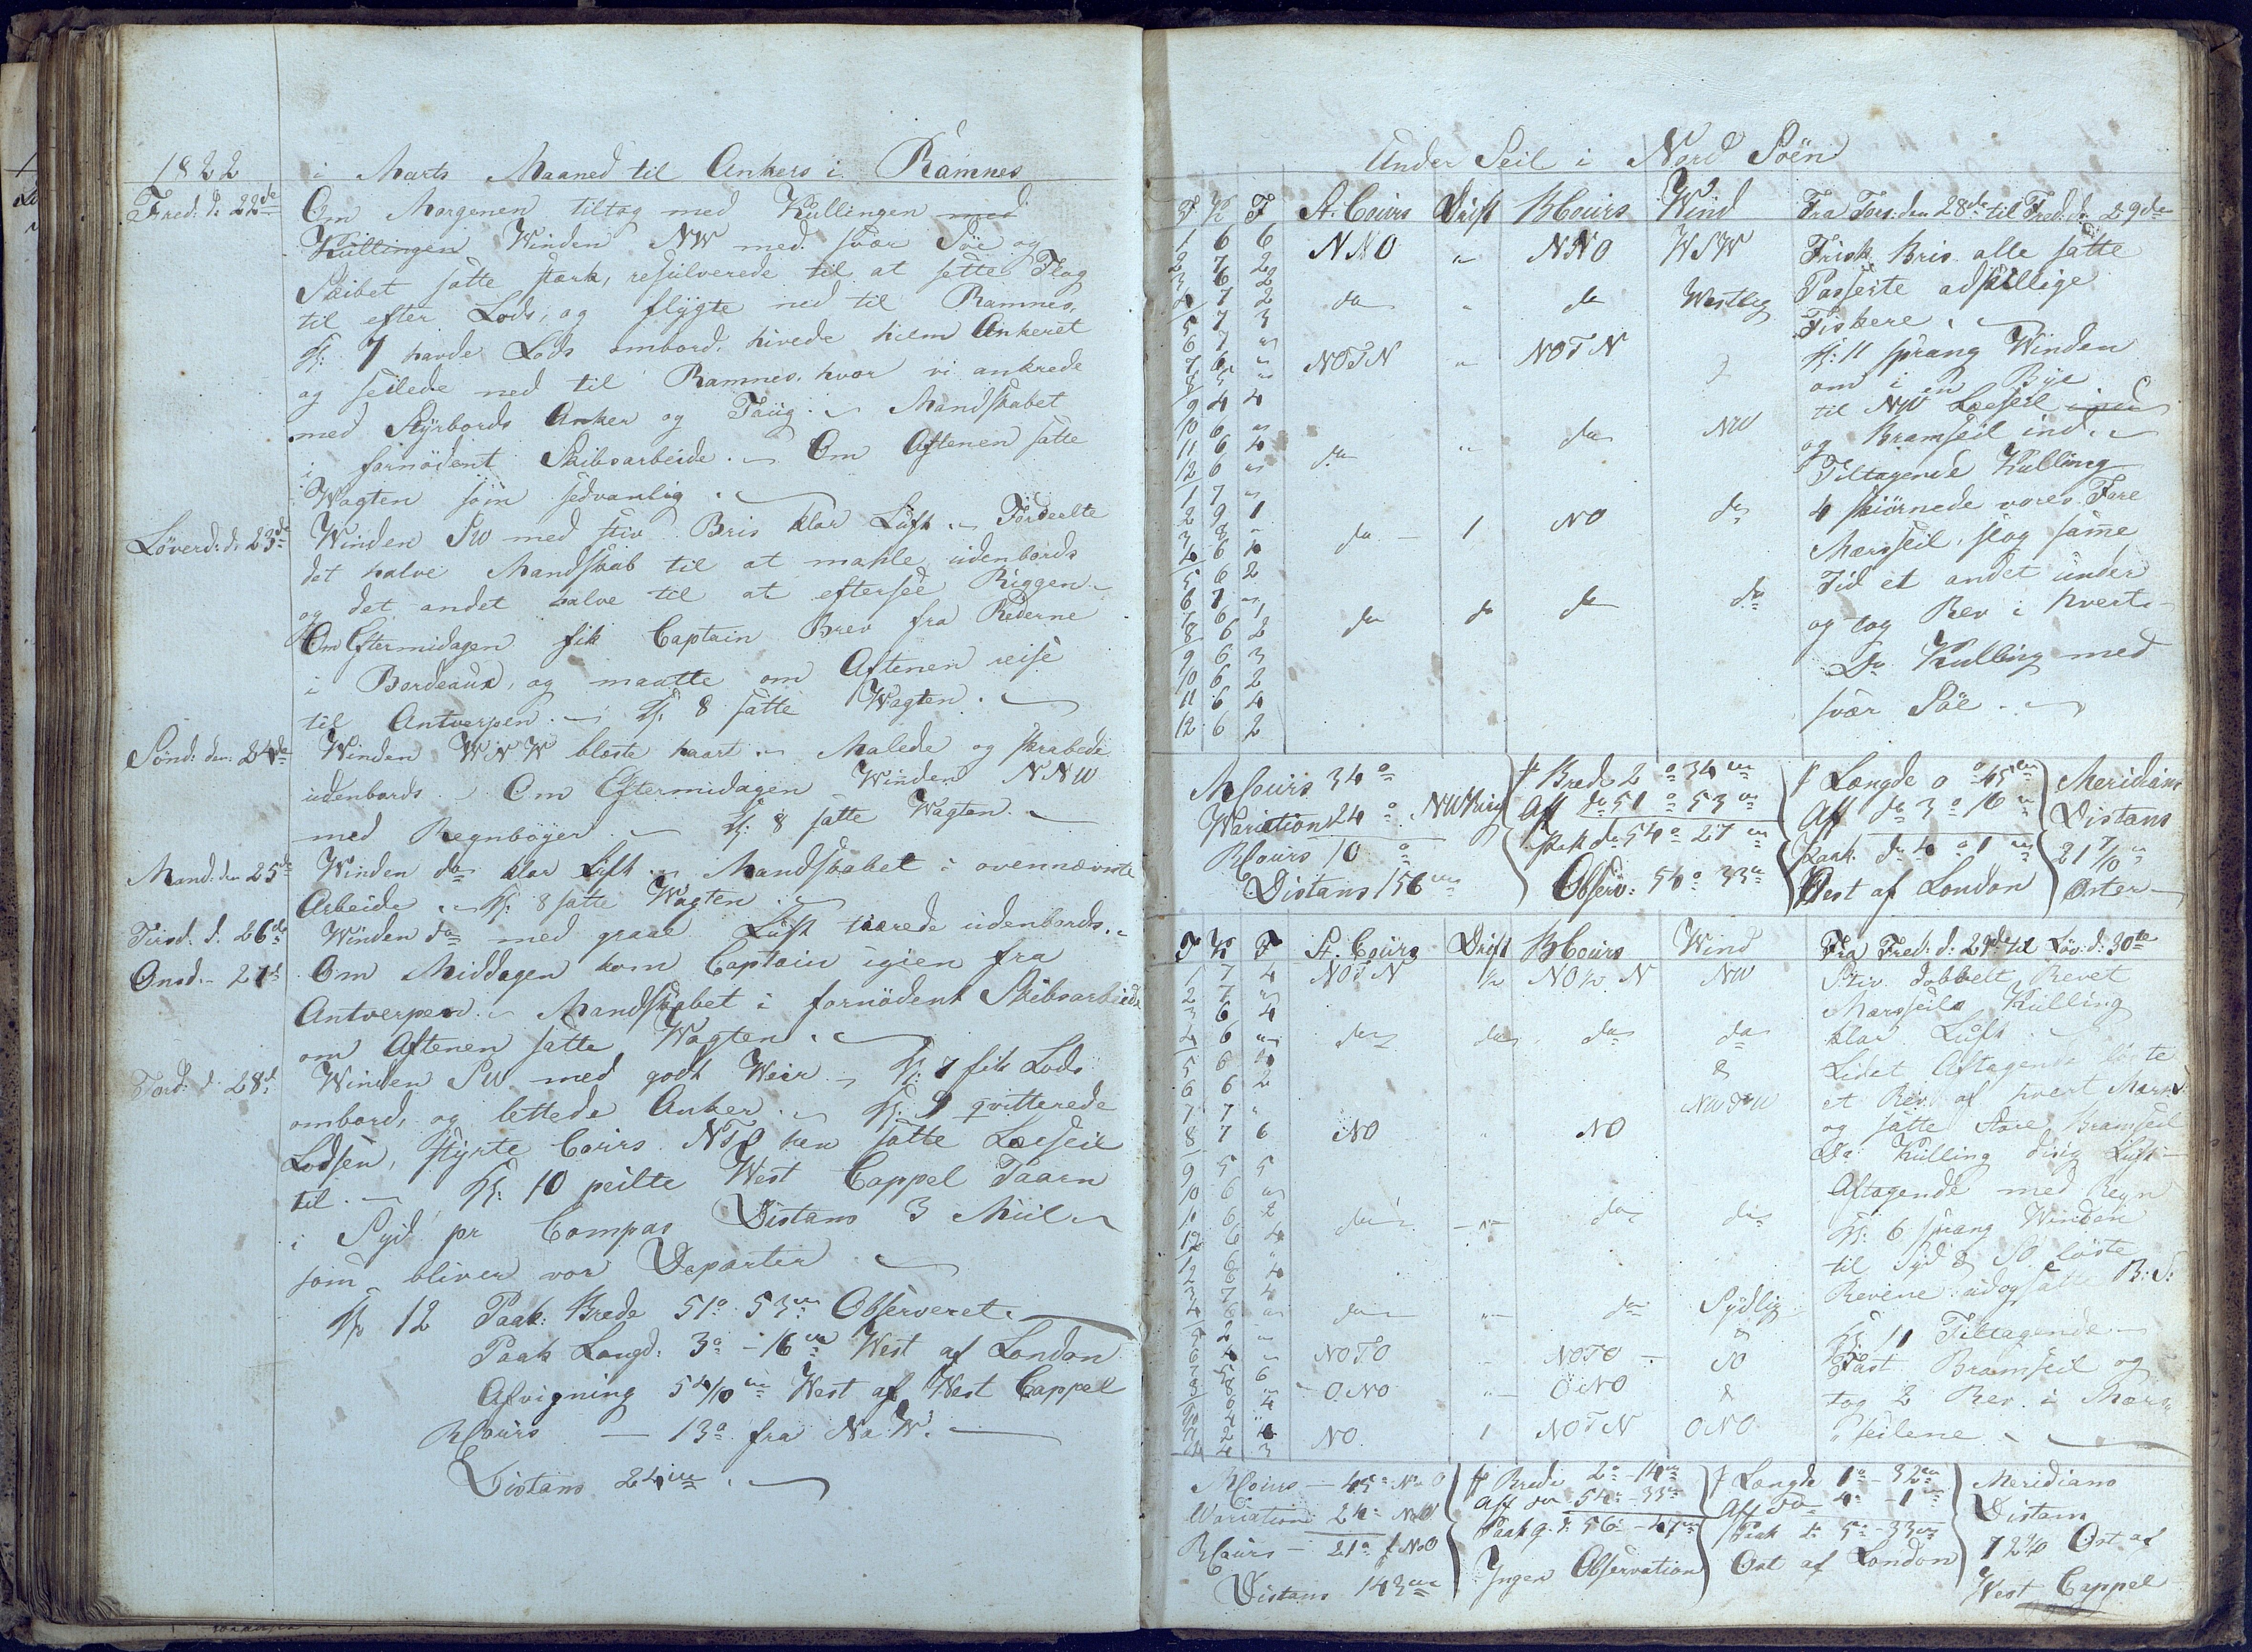 1822 i Marts Maaned til Ankers i Ramnes
Fred: d: 22de Om Morgenen tiltog med Kullingen med
Kullingen Winden NW med svær Söe og
Skibet satte stærk, resulverede til at sætte Flag
til efter Lods, og flygte ned til Ramnes,
Kl: 7 havde Lods ombord, hivede hiem Ankeret
og seilede ned til Ramnes, hvor vi ankrede
med Styrbords Anker og Taug. Mandskabet
i fornödent Skibsarbeide. Om Aftenen satte
Wagten som sedvanlig.
Löverd: d: 23de Winden SW med stiv Bris klar Luft. Fordeelte
det halve Mandskab til at mahle udenbords
og det andet halve til at eftersee Riggen.
Om Eftermidagen fik Captain Brev fra Rederne
i Bordeaux, og maatte om Aftenen reise
til Antverpen. Kl. 8 satte Wagten.
Sönd: den 24de Winden WNW blæste haart. Malede og skrabede
udenbords. Om Eftermidagen Winden NNW
med Regnböyer. Kl: 8 satte Wagten.
Mand: den 25de Winden do klar Luft. Mandskabet i ovennævnte
Arbeide. Kl: 8 satte Wagten.
Tirsd. d. 26de Winden do med graae Luft tiærede udenbords.
Onsd. 27d Om Middagen kom Captain igien fra
Antverpen. Mandskabet i fornödent Skibsarbeide
om Aftenen satte Wagten.
Torsd: d. 28d Winden SW med godt Weir. Kl: 7 fik Lods
ombord, og lettede Anker. Kl. 9 qvitterede
Lodsen, styrte Cours NTO hen satte Læeseil
til. Kl: 10 peilte West Cappel Taarn
i Syd pr Compas Distans 3 Miil
som bliver vor Departer
Kl 12 Paak: Brede 51° 53m Observeret.
Paak Langd: 3° - 16m West af London
Afvigning 5 4/10 m West af West Cappel
RCours - 13° fra No W.
Distans 24m.
Under Seil i Nord Söen
T K F St. Cours Drift BCours Wind Fra Tors: den 28de til Fred: d. 29de
1 6 6 NNO " NNO WSW Frisk Bris alle satte
2 7 2
3 6 2
4 7 2 do " do Westlig Passerte adskillige
5 7 3 Fiskere.
6 7 "
7 6 " NOTN " NOTN Kl: 11 sprang Winden
8 5 " om i en Bye
9 4 4 til NW Læeseil
10 6 "
11 6 4 do " do NW og Bramseil ind.
12 6 " Tiltagende Kulling
1 7 "
2 9 1 4 skiörnede vores Fore
3 8 " do 1 NO do Mærsseil, slog samme
4 6 10
5 6 2 Tid et andet under
6 7 "
7 6 1 do do do do og tog Rev i hvert
8 6 2
9 6 3 Do Kulling med
10 6 2
11 6 4 svær Söe.
12 6 2
MCours 34° f Brede 2° 34m f Længde 0° 45m Meridians
Wariation 24° NWring Aff do 51° 53m Aff do 3° 16m Distans
RCours 10° Paak do 54° 27m Paak do 4° 1m 21 7/10 m
Distans 156m Observ: 54° 33m Öest af London Öster
T K F St. Cours Drift BCours Wind Fra Fred: d: 29d til Löv: d: 30te
1 7 4 NOTN 1/2 NO 1/2 N NW Stiv dobbelt Revet
2 7 " Mærsseils Kulling
3 6 4
4 6 " do do do do klar Luft
5 6 Lidet Aftagende löste
6 6 2 et Rev af hvert Mærs S:
7 7 " NWTW og satte Store Bramseil
8 7 6 NO " NO Do Kulling disig Luft
9 5 5 Aftagende med Regn
10 6 "
6 2 do do do Kl: 6 sprang Winden
12 6 4 til Syd & SO löste
1 6 "
2 6 4 Revene ud og satte B: S:
3 7 4
4 6 " do " do Sydlig Kl 11 Tiltagende
5 2 " &
6 4 NOTO NOTO SO Fast Bramseil og
7 5 6 ONO ONO & tog 2 Rev i Mærs
NO 1 NOTN ONO seilene.
MCours - 45° No O f Brede 2° - 14m f Længde 1° - 32m Meridians
Wariation 24° NoW Aff do 54° - 33m Aff do 4° - 1m Distans
RCours - 21° f NoO Paak g. d: 56° - 47m Paak do 5° - 33m 72 Ost af
Distans 143m Ingen Observation Ost af London West Cappel